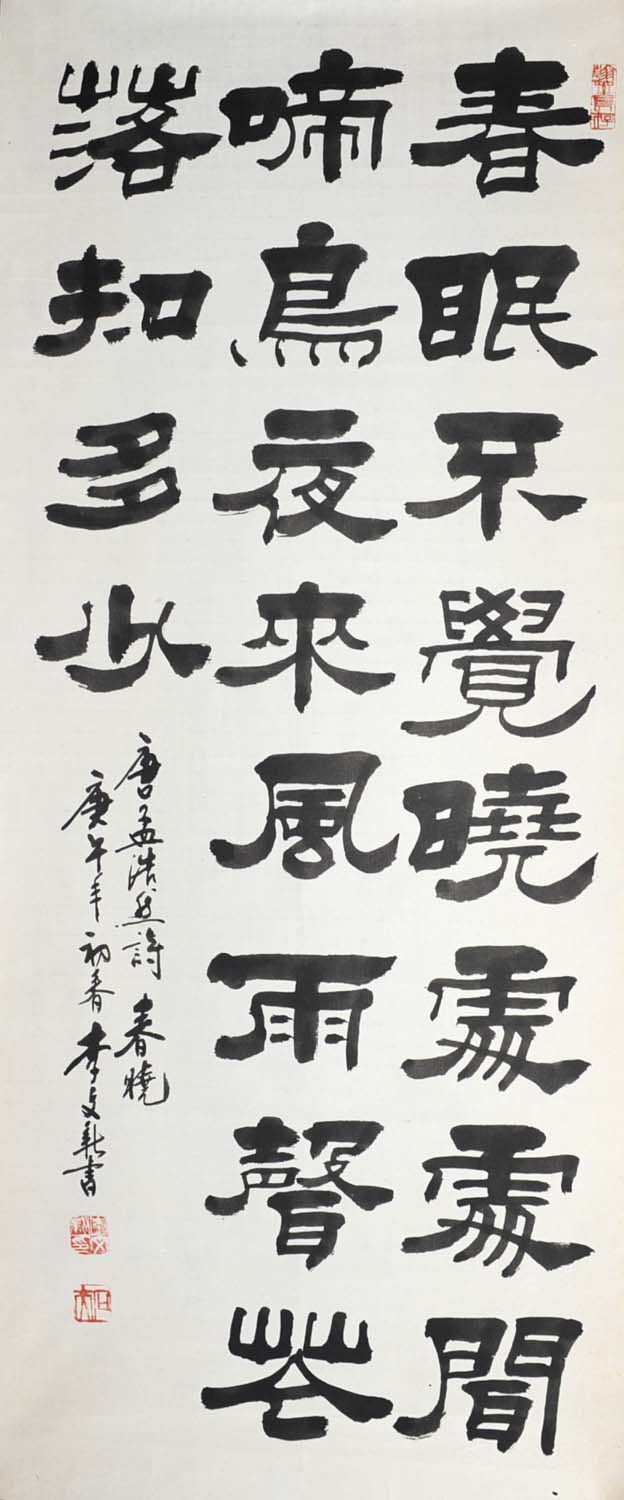 春眠不覺曉處處聞
啼鳥夜來風雨聲花
落知多少
唐孟浩然詩 春曉
庚午年初春 李文新書